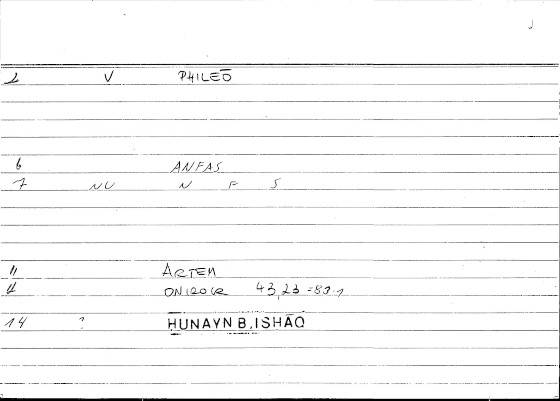 2 V PHILEŌ
6 ANFAS
7 NU N F S
11 ARTEM
ONIROCR 43,23 = 89.1
14 ? HUNAYN B. ISḤĀQ